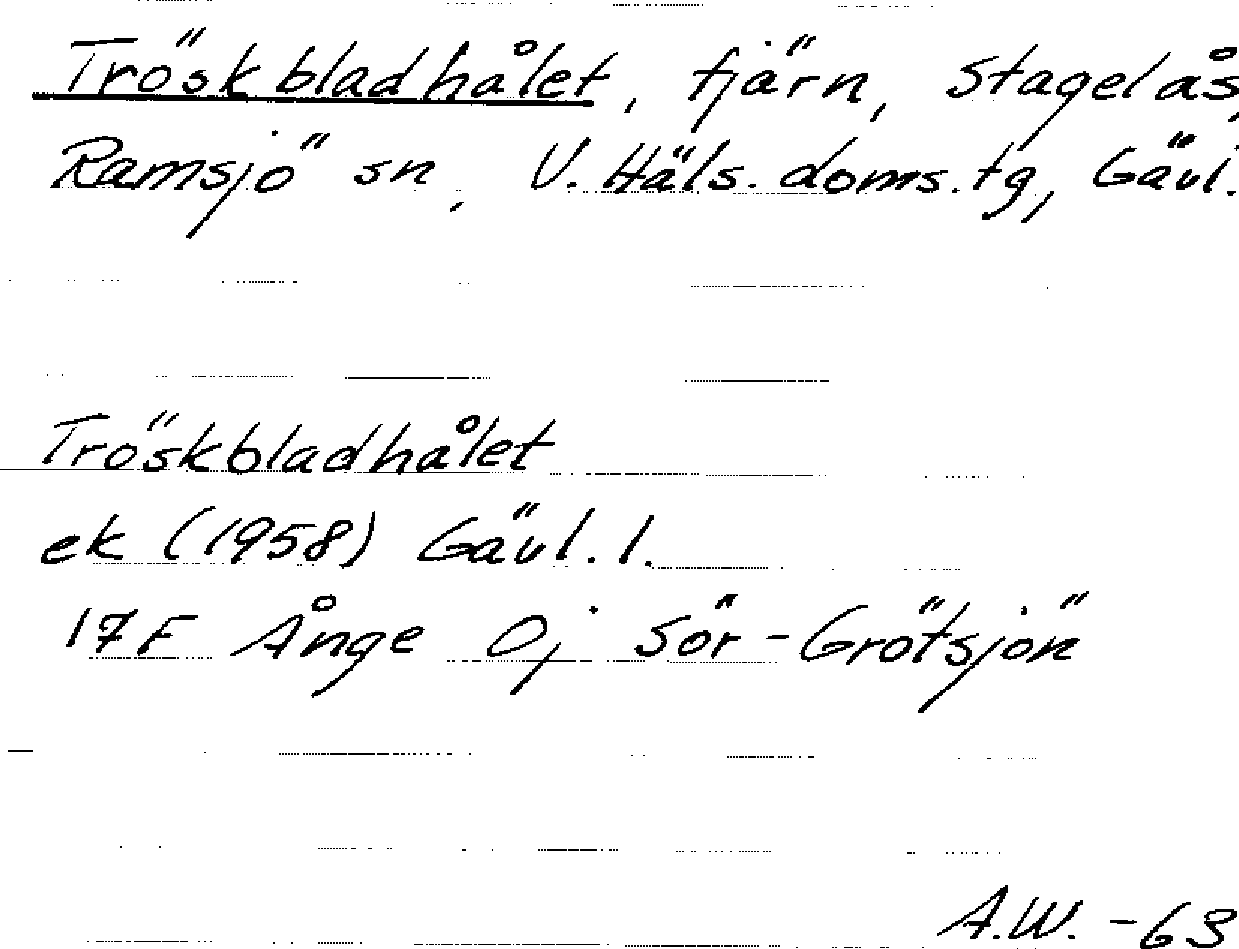 Tröskbladhålet, tjärn, Stagelås,
Ramsjö sn, V. Häls. doms. tg, Gävl.
Tröskbladhålet
ek (1958) Gävl. l.
17F Ånge 0j Sör-Grötsjön
A.W. -63